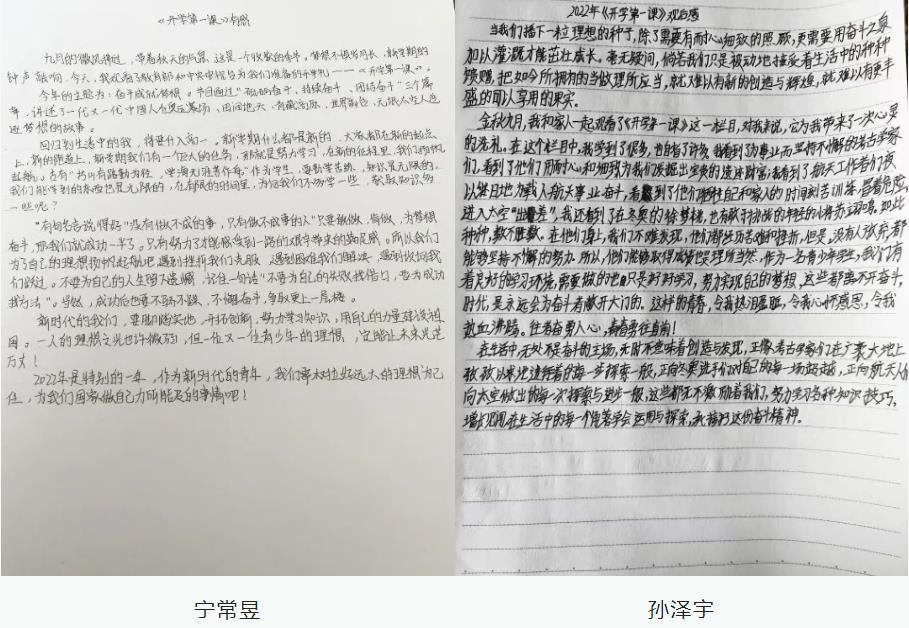 《开学第一课》有感
九月的微风拂过，带着秋天的气息，这是一个收获的季节。梦想不误岁月长，新学期的
钟声敲响。今天，我观看了教育部和中央电视台为我们准备的开学礼——《开学第一课》。
今年的主题为：奋斗成就梦想。节目通过"
章，讲述了一代又一代中国人
逐梦想的故事。
上，新的跑道上，新学期我们有一个巨大的任务，那就是努力学习，在新的征程里，我们
起航。古有"书山有路勤为径，学海无涯苦作舟"作为学生，要勤学苦练，知识是无限的，
我们能学到的东西也是无限的，在有限的时间里，为何我们不多学一些
一些呢？
"有句名言说得好："没有做不成的事，只有做不成事的人"只要敢做，肯做，为梦想
奋斗，那我们就成功一半了。只有努力了才能感受到一路的艰辛带来的满足感。所以我们
为了自己的理想扬帆起航吧 遇到挫折我们去克服 遇到困难我们解决
我们跃过。不要为自己的人生留下遗憾 记住一句话"不要为自己的失败找借口，要为成功
找方法"。当然，成功后也要不骄不躁、不懈奋斗，争取更上一层楼。
新时代的我们，要脚踏实地，开拓创新，努力学习知识，用自己的力量建设祖
国。一人的理想之光也许微弱，但一位又一位青少年的理想，定能让未来光芒
万丈！
2022年是特别的一年，作为新时代的青年，我们要树立好远大的理想为己
任，为我们国家做自己力所能及的事情吧！
宁常昱
2022年《开学第一课》观后感
当我们播下一粒理想的种子，除了需要有耐心细致的照顾，更需要用奋斗之泉
加以灌溉才能茁壮成长。毫无疑问，倘若我们只是被动地接受着生活中的种种
馈赠，把如今所拥有的当做理所应当，就难以有新的创造与辉煌，就难以有更丰
盛的可以享用的果实。
金秋九月，我和家人一起观看了《开学第一课》这一栏目，对我来说，它为我带来了一次心灵
的洗礼。在这个栏目中，我学到了很多，也自省了许多。我看到了为事业而坚持不懈的考古学家
们，看到了他们用耐心和细致为我们发掘出宝贵的遗迹财富；我看到了航天工作者们夜
以继日地为载人航天事业奋斗，看到了他们牺牲自己和家人的时间刻苦训练，冒着危险，
进入太空"出差"，我还看到了在冬奥的
种种，数不胜数。在他们身上，我们不难发现，他们都经历苦难和挫折，但是，没有人放弃，都
能够坚持不懈的努力。所以，他们能够取得成绩也是理所当然。作为一名青少年学生，我们有
着良好的学习环境，需要做的也只是好好学习，努力实现自己的梦想，这些都离不开奋斗，
时代，是永远会为奋斗者敞开大门的。这样的青春，令我热泪盈眶，令我心怀感恩，令我
热血沸腾。
在生活中，无处不是奋斗的主场，无时不意味着创造与发现，正像考古学家们在广袤大地上
孜孜以求地进行着的每一步探索一般，正向冬奥选手们对自己的每一场超越，正向航天人
向太空做出的每一次探索与进步一般，这些都无不激励着我们，努力学习各种知识技巧，
孙泽宇